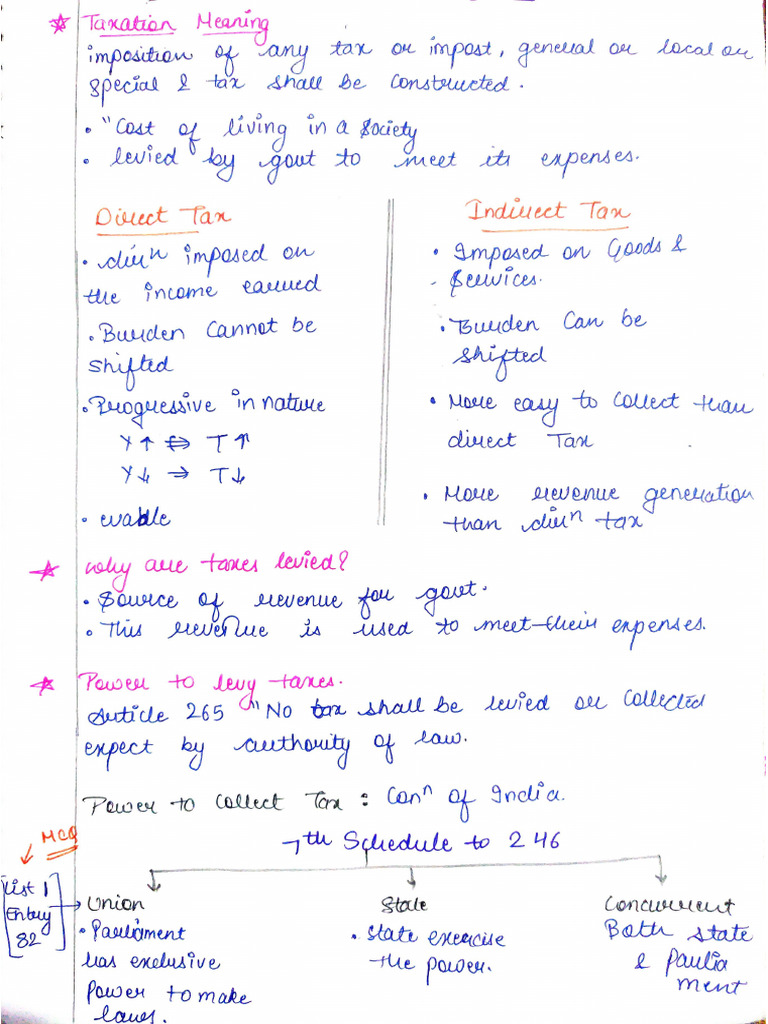 Taxation Meaning
imposition of any tax or impost, general or local or
special & tax shall be constructed.
• "Cost of living in a Society
• levied by govt to meet its expenses.
Direct Tax
• dirⁿ imposed on
the income earned
• Burden Cannot be
shifted
• Progressive in nature
Y↑ ⇔ T↑
Y↓ → T↓
• evable
Indirect Tax
• Imposed on Goods &
- Services.
• Burden Can be
shifted
• More easy to collect than
direct Tax
• More revenue generation
than dirⁿ tax
Why are taxes levied?
• Source of revenue for govt.
• This revenue is used to meet their expenses.
Power to levy taxes.
Article 265 "No tax shall be levied or collected
expect by authority of law.
Power to collect Tax : Conⁿ of India.
7th Schedule to 246
MCQ
List 1
Entry
82
Union
• Parliament
has exclusive
power to make
laws.
State
• State exercise
the power.
Concurrent
Both state
& Parlia
ment